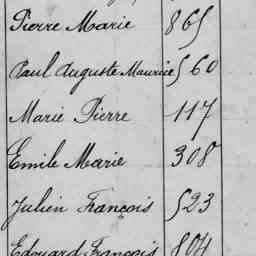 Pierre Marie 865
Paul Auguste Maurice 560
Marie Pierre 117
Emile Marie 308
Julien François 523
Edouard François 804